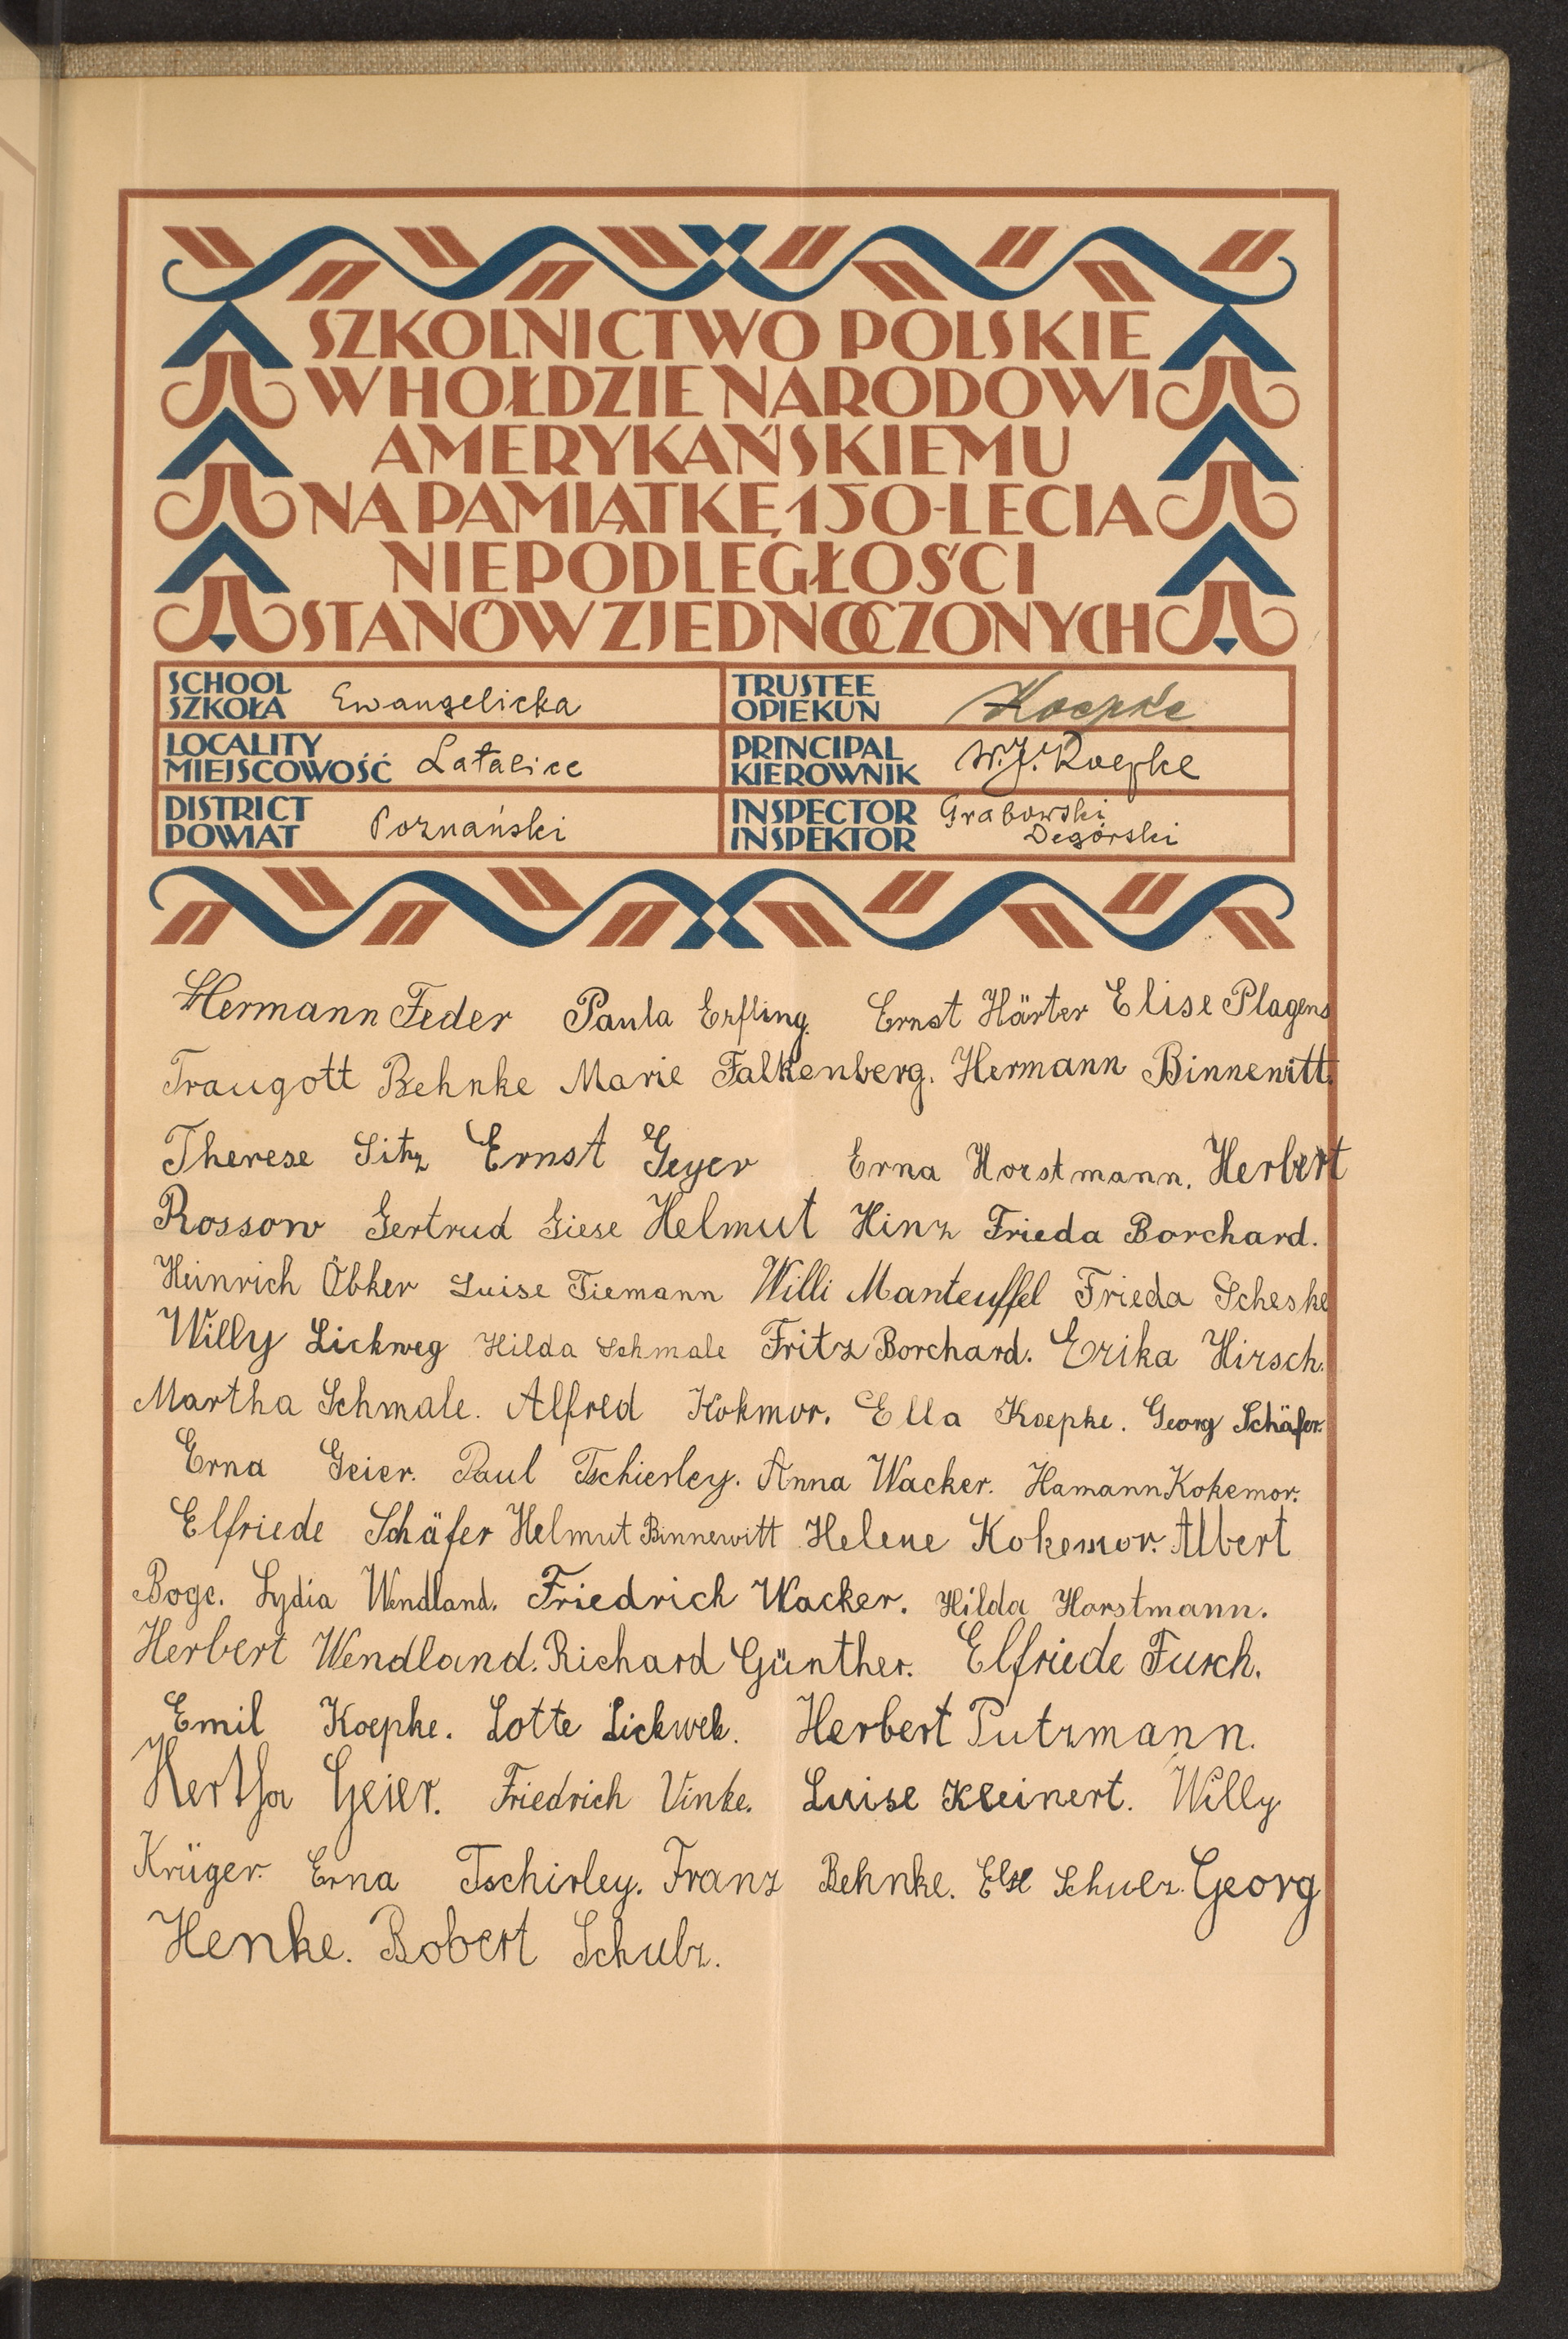 SZKOLNICTWO POLSKIE
W HOŁDZIE NARODOWI
AMERYKAŃSKIEMU
NA PAMIĄTKĘ 150-LECIA
NIEPODLEGŁOŚCI
STANÓW ZJEDNOCZONYCH
SCHOOL
SZKOŁA Ewangelicka
TRUSTEE
OPIEKUN Koepke
LOCALITY
MIEJSCOWOŚĆ Latalice
PRINCIPAL
KIEROWNIK W.J. Koepke
DISTRICT
POWIAT Poznański
INSPECTOR Grabowski
INSPEKTOR Degórski
Hermann Feder Paula Erfling. Ernst Härter Elise Plagens
Traugott Behnke Marie Falkenberg. Hermann Binnewitt.
Therese Sitz Ernst Geyer Erna Horstmann. Herbert
Rossow Gertrud Giese Helmut Hinz Frieda Borchard.
Heinrich Öbker Luise Tiemann Willi Manteuffel Frieda Scheske
Willy Lickweg Hilda Schmale Fritz Borchard. Erika Hirsch.
Martha Schmale. Alfred Kokmor. Ella Koepke. Georg Schäfer.
Erna Geier. Paul Tschierley. Anna Wacker. Hamann Kokemor.
Elfriede Schäfer Helmut Binnewitt Helene Kokemor. Albert
Boge. Lydia Wendland. Friedrich Wacker. Hilda Horstmann.
Herbert Wendland. Richard Günther. Elfriede Fusch.
Emil Koepke. Lotte Lickwek. Herbert Putzmann.
Hertha Geier. Friedrich Vinke. Luise Kleinert. Willy
Krüger. Erna Tschirley. Franz Behnke. Else Schulz. Georg
Henke. Robert Schulz.